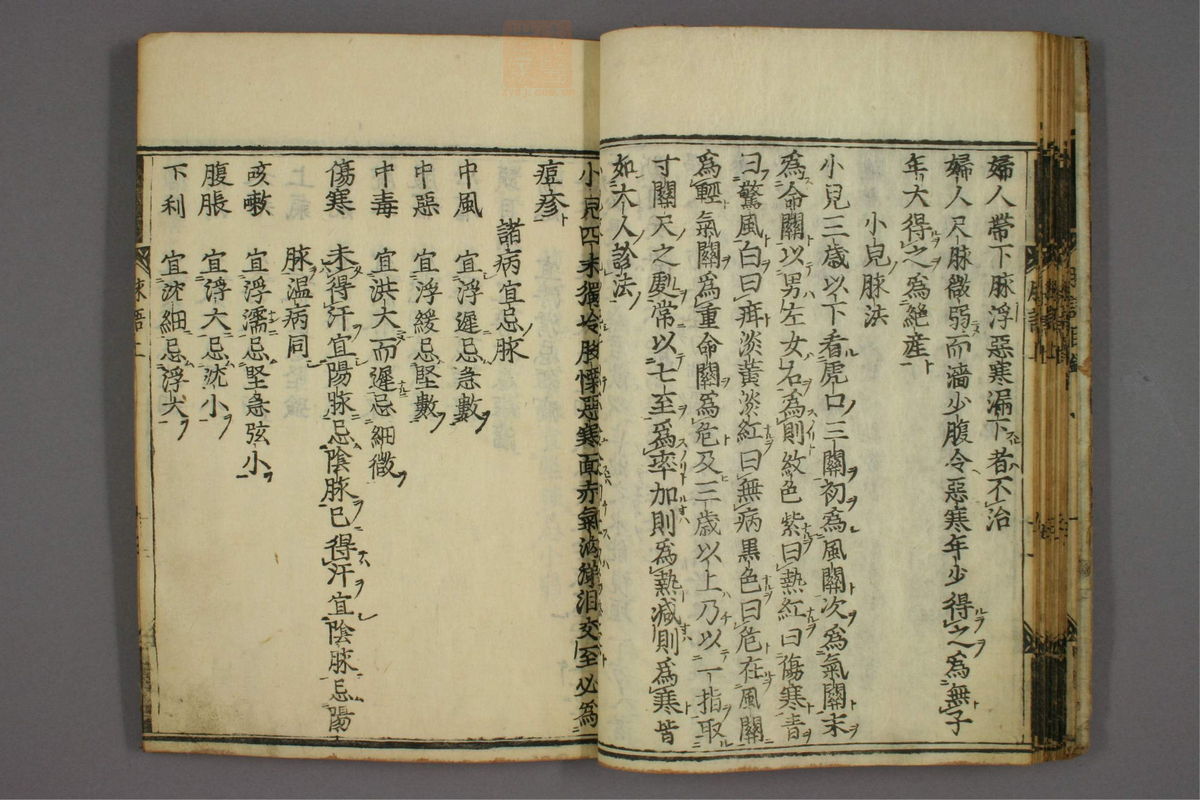 婦人帶下脉浮惡寒漏下者不治
婦人尺脉微弱而濇少腹令惡寒年少得之爲無子
年大得之爲絶産
小兒脉法
小兒三歳以下看虎口三關初爲風關次爲氣關末
爲命關以男左女右爲則紋色紫曰熱紅曰傷寒青
曰驚風白曰疳淡黄淡紅曰無病黒色曰危在風關
爲輕氣關爲重命關爲危及三歳以上乃以一指取
寸關天之𠙚常以七至爲率加則爲熱减則爲寒皆
如大人診法
小兒四末獨冷股慄惡寒面赤氣洶涕泪交至必爲
痘疹
諸病宜忌脉
中風 宜浮遲忌急數
中惡 宜浮緩忌堅數
中毒 宜洪大而遲忌細微
傷寒 未得汗宜陽脉忌陰脉已得汗宜陰脉忌陽
脉温病同
咳嗽 宜浮濡忌堅急弦小
腹脹 宜浮大忌沈小
下利 宜沈細忌浮大
脉語上